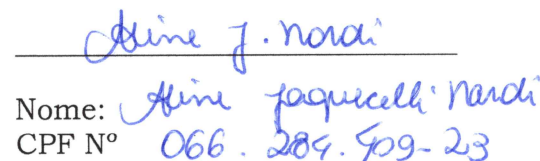 Aline J. Nardi
Nome: Aline Jaquecelli Nardi
CPF Nº 066.284.409-23